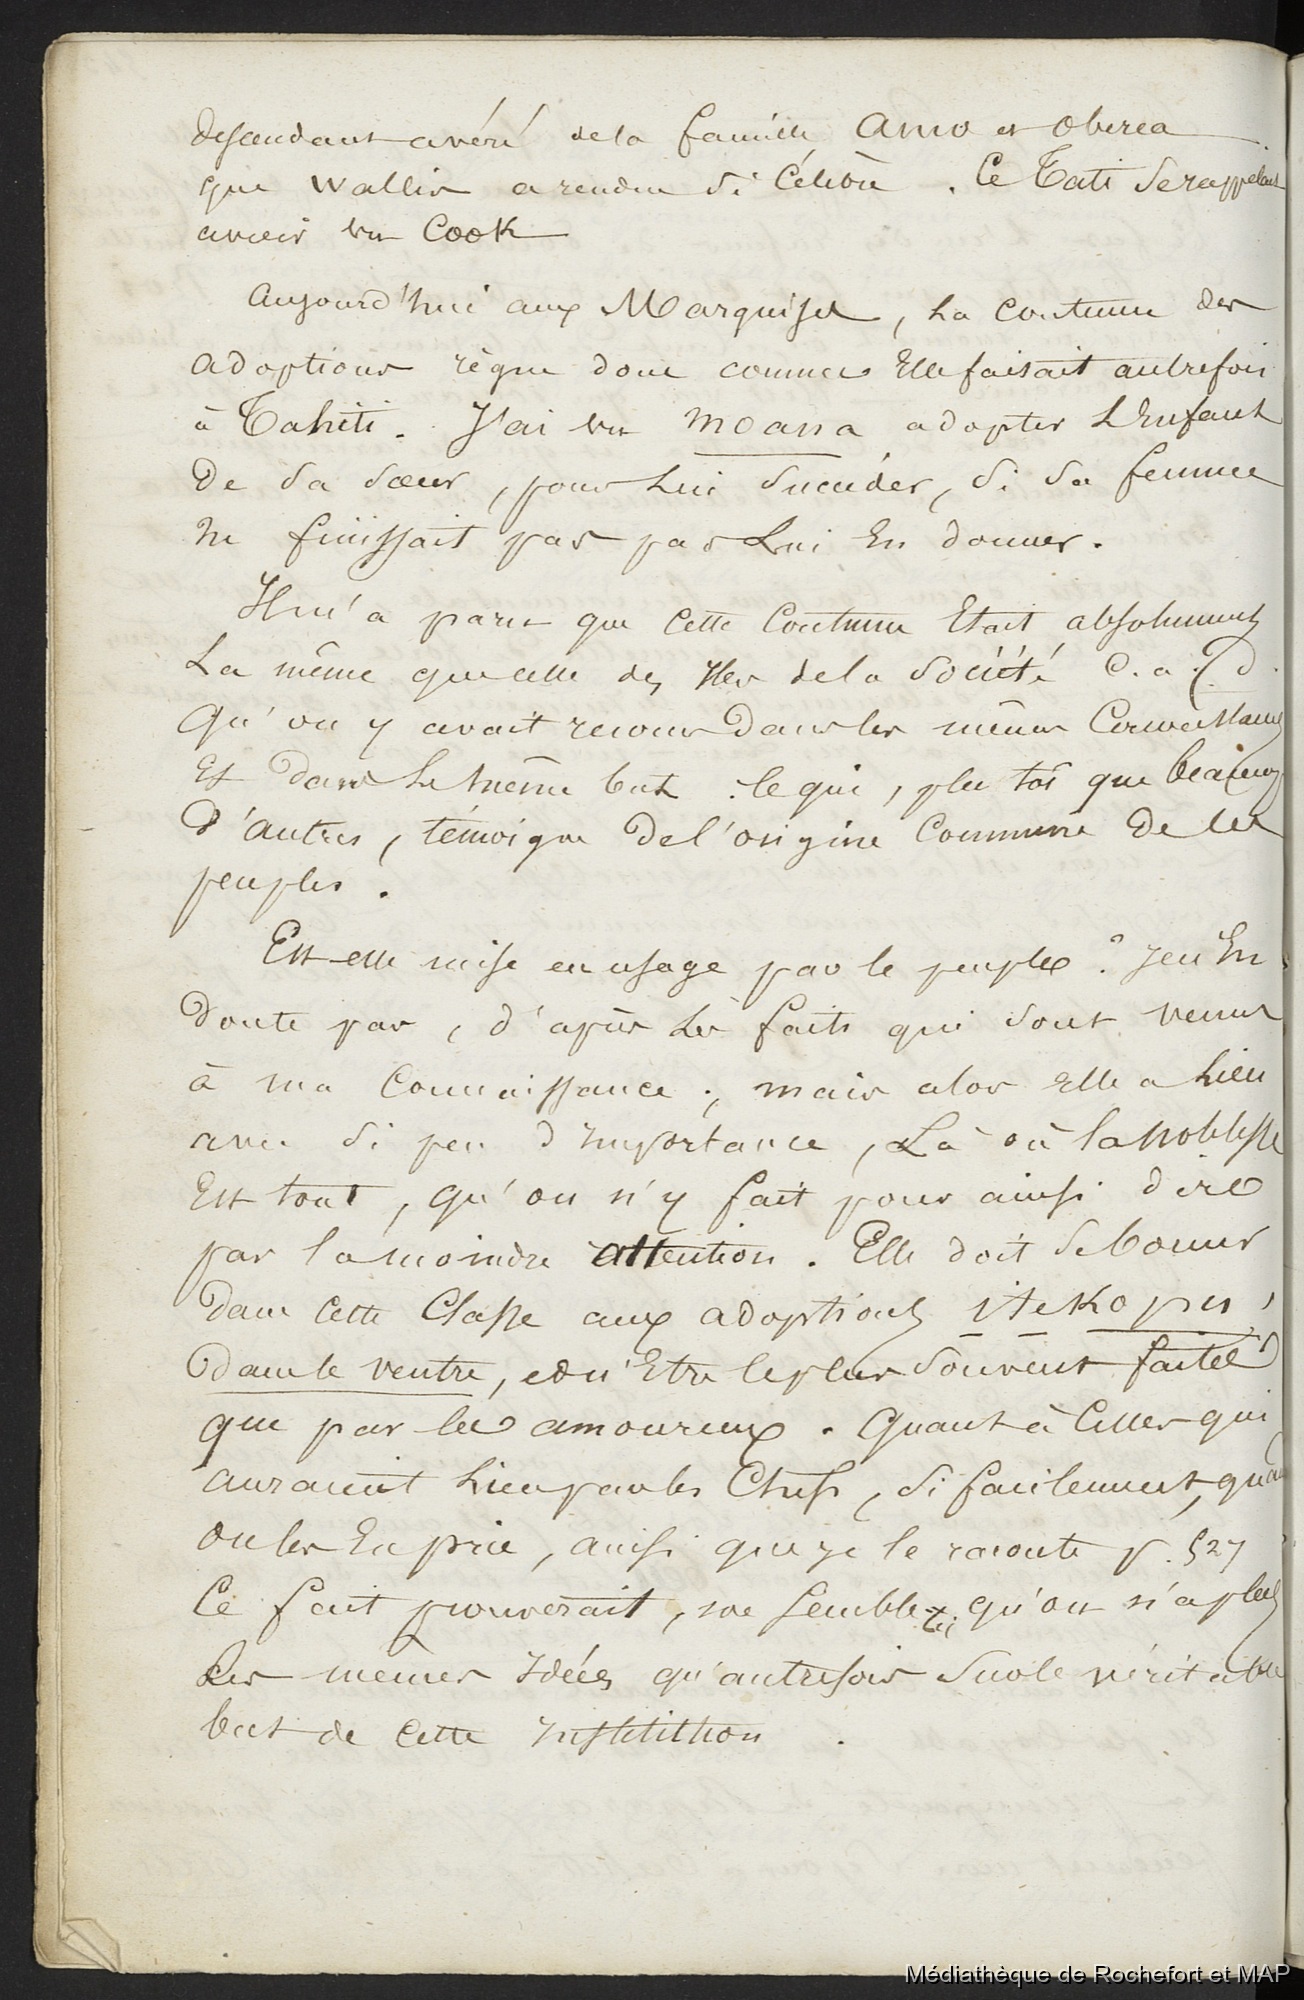 descendant avéré de la famille Amo et Oberea
que Wallis a rendue si célèbre. Ce Tati se rappelait
avoir vu Cook
Aujourd'hui aux Marquises, la coutume des
adoptions règne donc comme elle faisait autrefois
à Tahiti. J'ai vu Moana adopter l'enfant
de sa sœur, pour lui succéder, si sa femme
ne finissait pas par lui en donner.
Il m'a paru que cette coutume était absolument
la même que celle des Iles de la Société c. a. d.
qu'on y avait recours dans les mêmes circonstances
et dans le même but. Ce qui, plutôt que beaucoup
d'autres, témoigne de l'origine commune de ces
peuples.
Est-elle mise en usage par le peuple? Je n'en
doute pas, d'après les faits qui sont venus
à ma connaissance; mais alors elle a lieu
avec si peu d'importance, là où la noblesse
est tout, qu'on n'y fait pour ainsi dire
pas la moindre attention. Elle doit se borner
dans cette classe aux adoptions i te kopu,
dans le ventre, et n'être le plus souvent faite
que par les amoureux. Quant à celles qui
auraient lieu par les chefs, si facilement, quand
on les en prie, ainsi que je le raconte p. 527
Ce fait prouverait, me semble-t-il, qu'on n'a plus
les mêmes idées qu'autrefois sur le véritable
but de cette institution.
Médiathèque de Rochefort et MAP